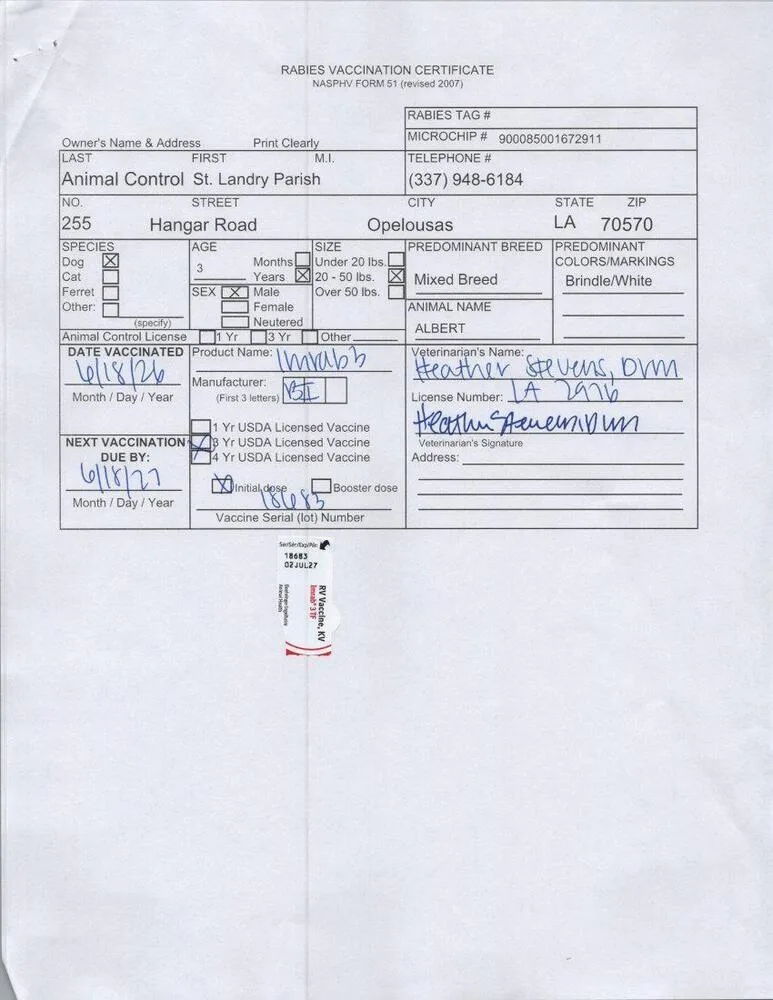 RABIES VACCINATION CERTIFICATE
NASPHV FORM 51 (revised 2007)
RABIES TAG #
MICROCHIP # 900085001672911
Owner's Name & Address Print Clearly
LAST FIRST M.I. TELEPHONE #
Animal Control St. Landry Parish (337) 948-6184
NO. STREET CITY STATE ZIP
255 Hangar Road Opelousas LA 70570
SPECIES AGE SIZE PREDOMINANT BREED PREDOMINANT
Dog Months Under 20 lbs. COLORS/MARKINGS
Cat 3 Years 20 - 50 lbs. Mixed Breed Brindle/White
Ferret SEX Male Over 50 lbs.
Other: Female ANIMAL NAME
(specify) Neutered ALBERT
Animal Control License 1 Yr 3 Yr Other
DATE VACCINATED Product Name: Imrab 3 Veterinarian's Name: Heather Stevens, DVM
6/18/26
Month / Day / Year Manufacturer: BI License Number: LA 2976
(First 3 letters)
Heather Stevens DVM
1 Yr USDA Licensed Vaccine
NEXT VACCINATION 3 Yr USDA Licensed Vaccine Veterinarian's Signature
DUE BY: 4 Yr USDA Licensed Vaccine Address:
6/18/27
Initial dose Booster dose
Month / Day / Year 18683
Vaccine Serial (lot) Number
18683
02JUL27
RV Vaccine, KV
Imrab® 3 TF
Boehringer Ingelheim
Animal Health